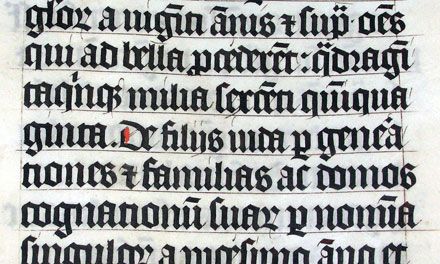 glor a uigīti ānis ⁊ sup̄ oēs
qui ad bella ꝓcederēt: q̄dragī
taqīnqꝫ milia sexcēti quīqua
ginta. De filijs iuda ꝑ gene͛a
tiones ⁊ familias ac domos
cognationū suaꝝ ꝑ nomīa
singuloꝝ a uicesimo āno et